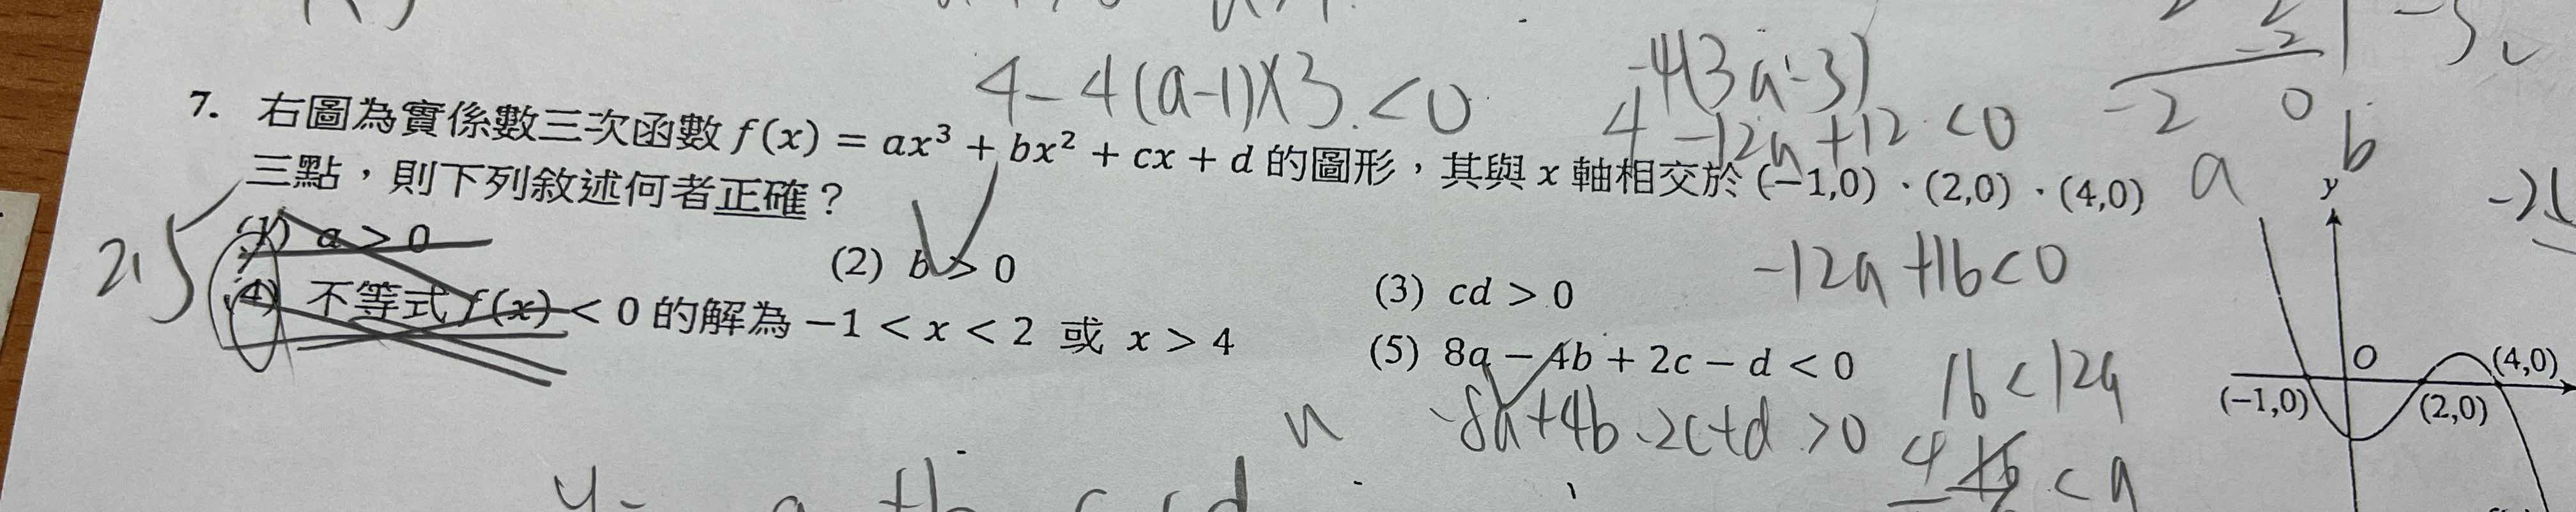 4-4(a-1)×3<0
-4(3a-3)
4-12a+12<0
-2 0
7. 右圖為實係數三次函數 f(x) = ax³ + bx² + cx + d 的圖形，其與 x 軸相交於 (-1,0)、(2,0)、(4,0)
三點，則下列敘述何者正確？
a b
-12a+16<0
25
(1) a > 0
(2) b > 0
(3) cd > 0
(4) 不等式 f(x) < 0 的解為 -1 < x < 2 或 x > 4
(5) 8a - 4b + 2c - d < 0
-8a+4b-2c+d>0
16<12a
<a
y
O
(4,0)
(-1,0)
(2,0)